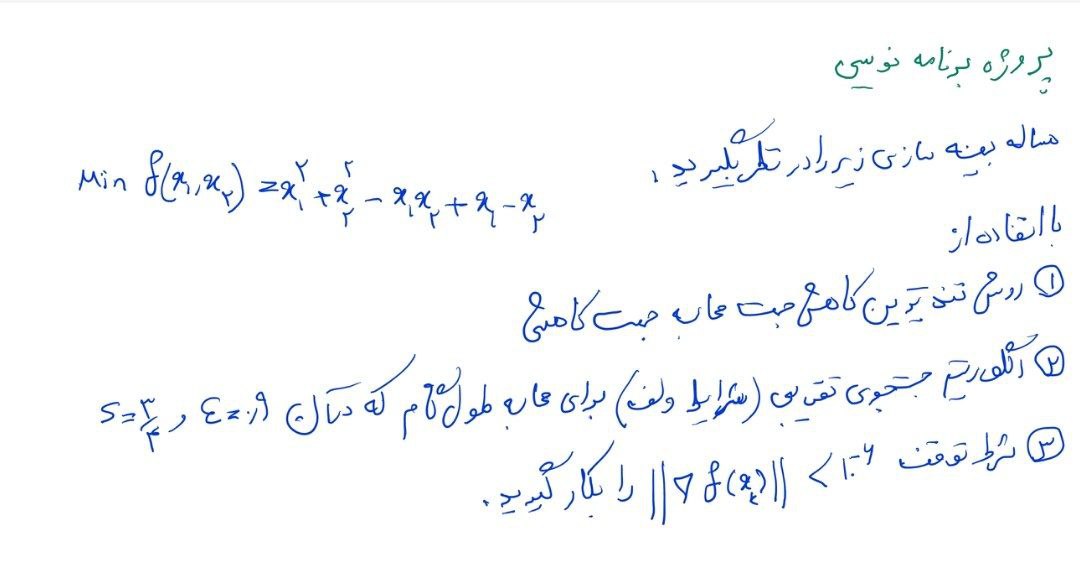 پروژه برنامه نویسی
مساله بهینه سازی زیر را در نظر بگیرید.
Min f(x₁,x₂) = x₁² + x₂² - x₁x₂ + x₁ - x₂
با استفاده از
① روش تندترین کاهش جهت محاسبه جهت کاهشی
② الگوریتم جستجوی تقریبی (شرایط ولف) برای محاسبه طول گام که در آن ε=۰٫۹ و s=۳/۴
③ شرط توقف ||∇f(xₖ)|| < ۱۰⁻⁶ را بکار گیرید.